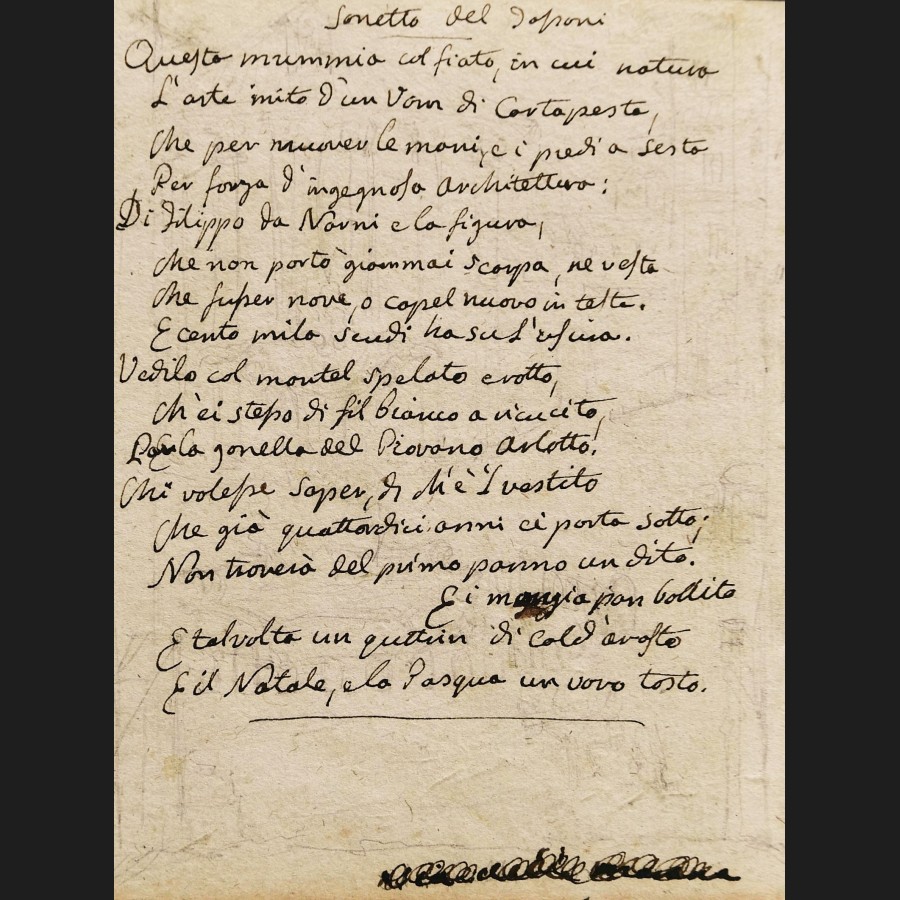 Sonetto del Tassoni
Questa mummia col fiato, in cui natura
L'arte imitò d'un Vom di Cartapesta,
Che per muover le mani, e i piedi a sesta
Per forza d'ingegnosa Architettura:
Di Filippo da Narni e la figura,
Che non portò giammai scarpa, ne vesta
Che fusser nove, o capel nuovo in testa.
E cento mila scudi ha su L'usura.
Vedilo col mantel spelato e rotto,
Ch'ei stesso di fil bianco a ricucito,
E la gonella del Piovano Arlotto.
Chi volesse saper, di ch'è 'l vestito
Che già quattordici anni ei porta sotto;
Non troverà del primo panno un dito.
Ei mangia pan bollito
E talvolta un quttin di cald'arosto
E il Natale, e la Pasqua un vovo tosto.